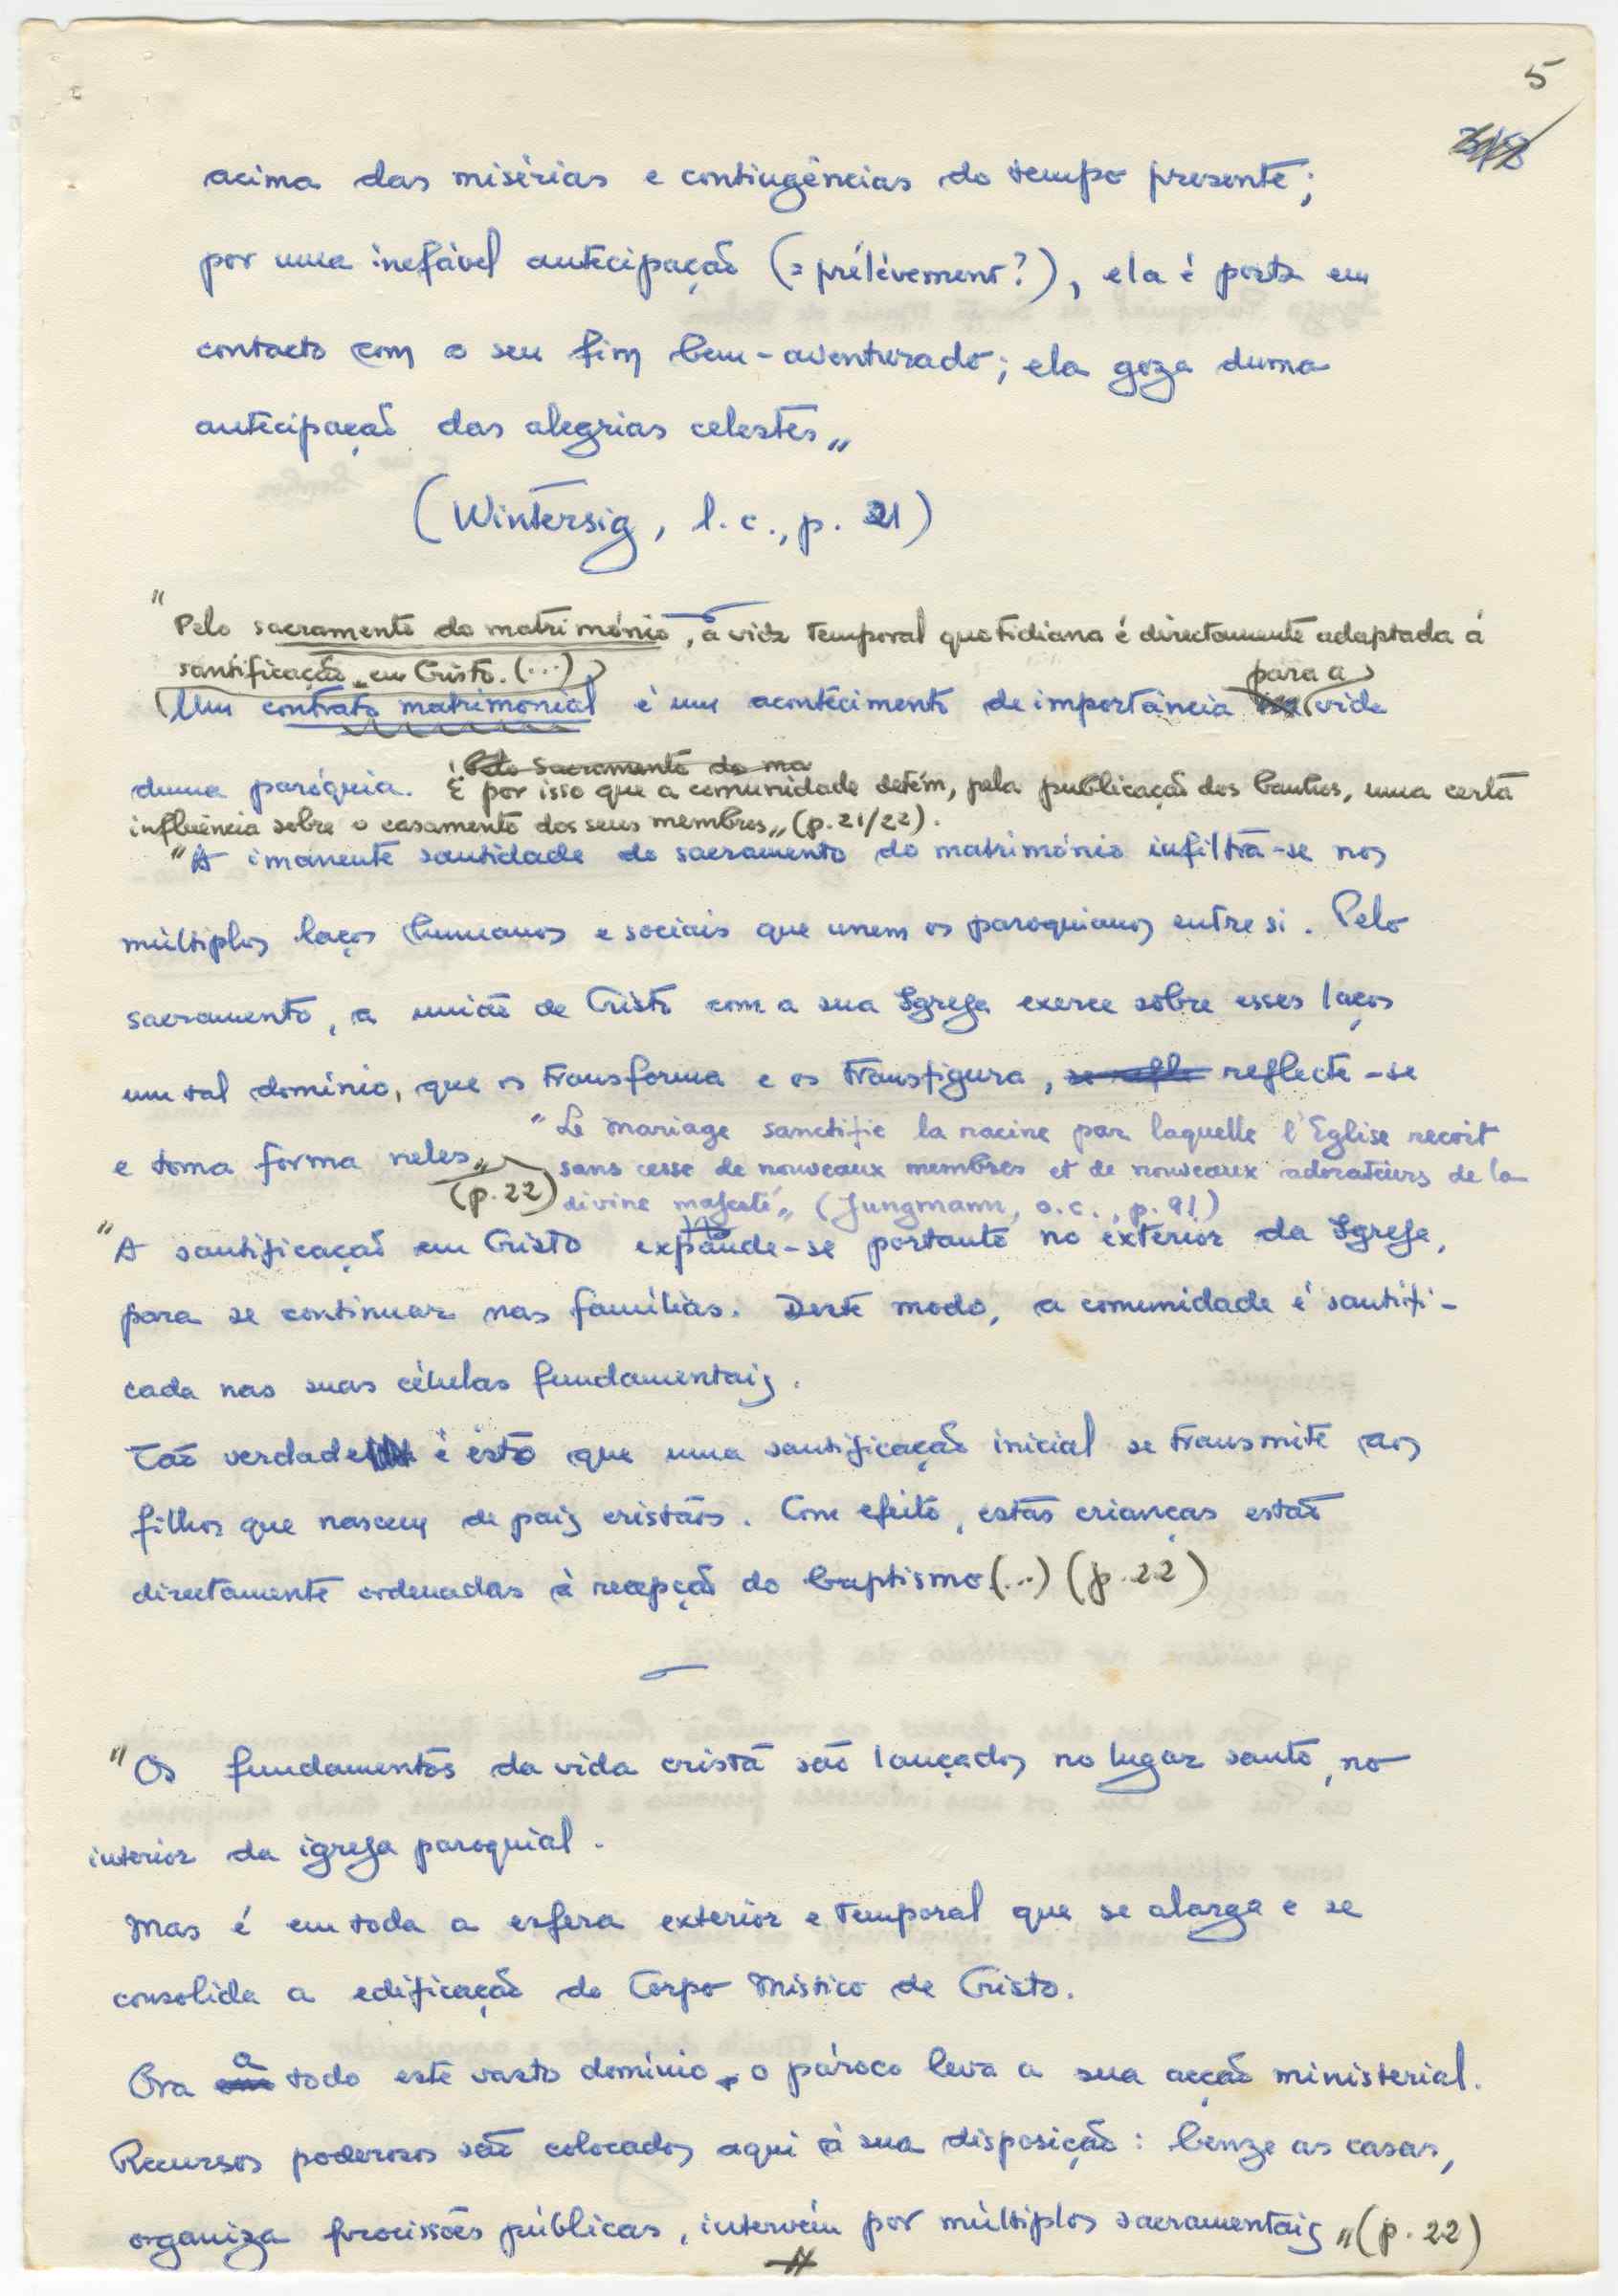 5
acima das misérias e contingências do tempo presente;
por uma inefável antecipação (= prélèvement?), ela é posta em
contacto com o seu fim bem-aventurado; ela goza duma
antecipação das alegrias celestes"
(Wintersig, l.c., p. 21)
"Pelo sacramento do matrimónio, a vida temporal quotidiana é directamente adaptada à
santificação em Cristo. (...)
Um contrato matrimonial é um acontecimento de importância para a vida
duma paróquia. Pelo Sacramento do ma
É por isso que a comunidade detém, pela publicação dos banhos, uma certa
influência sobre o casamento dos seus membros" (p. 21/22).
"A imanente santidade do sacramento do matrimónio infiltra-se nos
múltiplos laços humanos e sociais que unem os paroquianos entre si. Pelo
sacramento, a união de Cristo com a sua Igreja exerce sôbre esses laços
um tal domínio, que os transforma e os transfigura, se refle reflecte-se
e toma forma neles" (p. 22)
"Le mariage sanctifie la racine par laquelle l'Eglise reçoit
sans cesse de nouveaux membres et de nouveaux adorateurs de la
divine majesté" (Jungmann, o.c., p. 91)
"A santificação em Cristo expande-se portanto no exterior da Igreja,
para se continuar nas famílias. Deste modo, a comunidade é santifi-
cada nas suas células fundamentais.
Tão verdade é isto que uma santificação inicial se transmite aos
filhos que nascem de pais cristãos. Com efeito, estas crianças estão
directamente ordenadas à recepção do baptismo (...) (p. 22)
"Os fundamentos da vida cristã são lançados no lugar santo, no
interior da igreja paroquial.
Mas é em toda a esfera exterior e temporal que se alarga e se
consolida a edificação do Corpo Místico de Cristo.
Ora a todo este vasto domínio, o pároco leva a sua acção ministerial.
Recursos poderosos são colocados aqui à sua disposição: benze as casas,
organiza procissões públicas, intervém por múltiplos sacramentais" (p. 22)